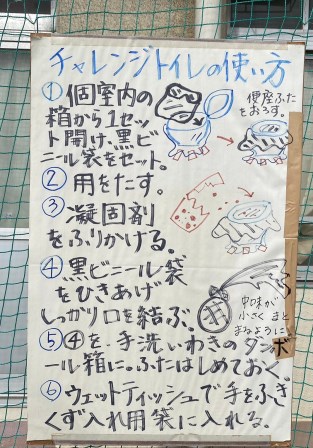 チャレンジトイレの使い方
① 個室内の
箱から1セッ
ト開け、黒ビ
ニール袋をセット。
便座ふた
をおろす。
② 用をたす。
③ 凝固剤
をふりかける。
④ 黒ビニール袋
をひきあげ
しっかり口を結ぶ。
中味が
小さくまと
まるように
⑤ ④を手洗いわきのダンボ
ール箱に。ふたはしめておく。
⑥ ウェットティッシュで手をふき
くず入れ用袋に入れる。